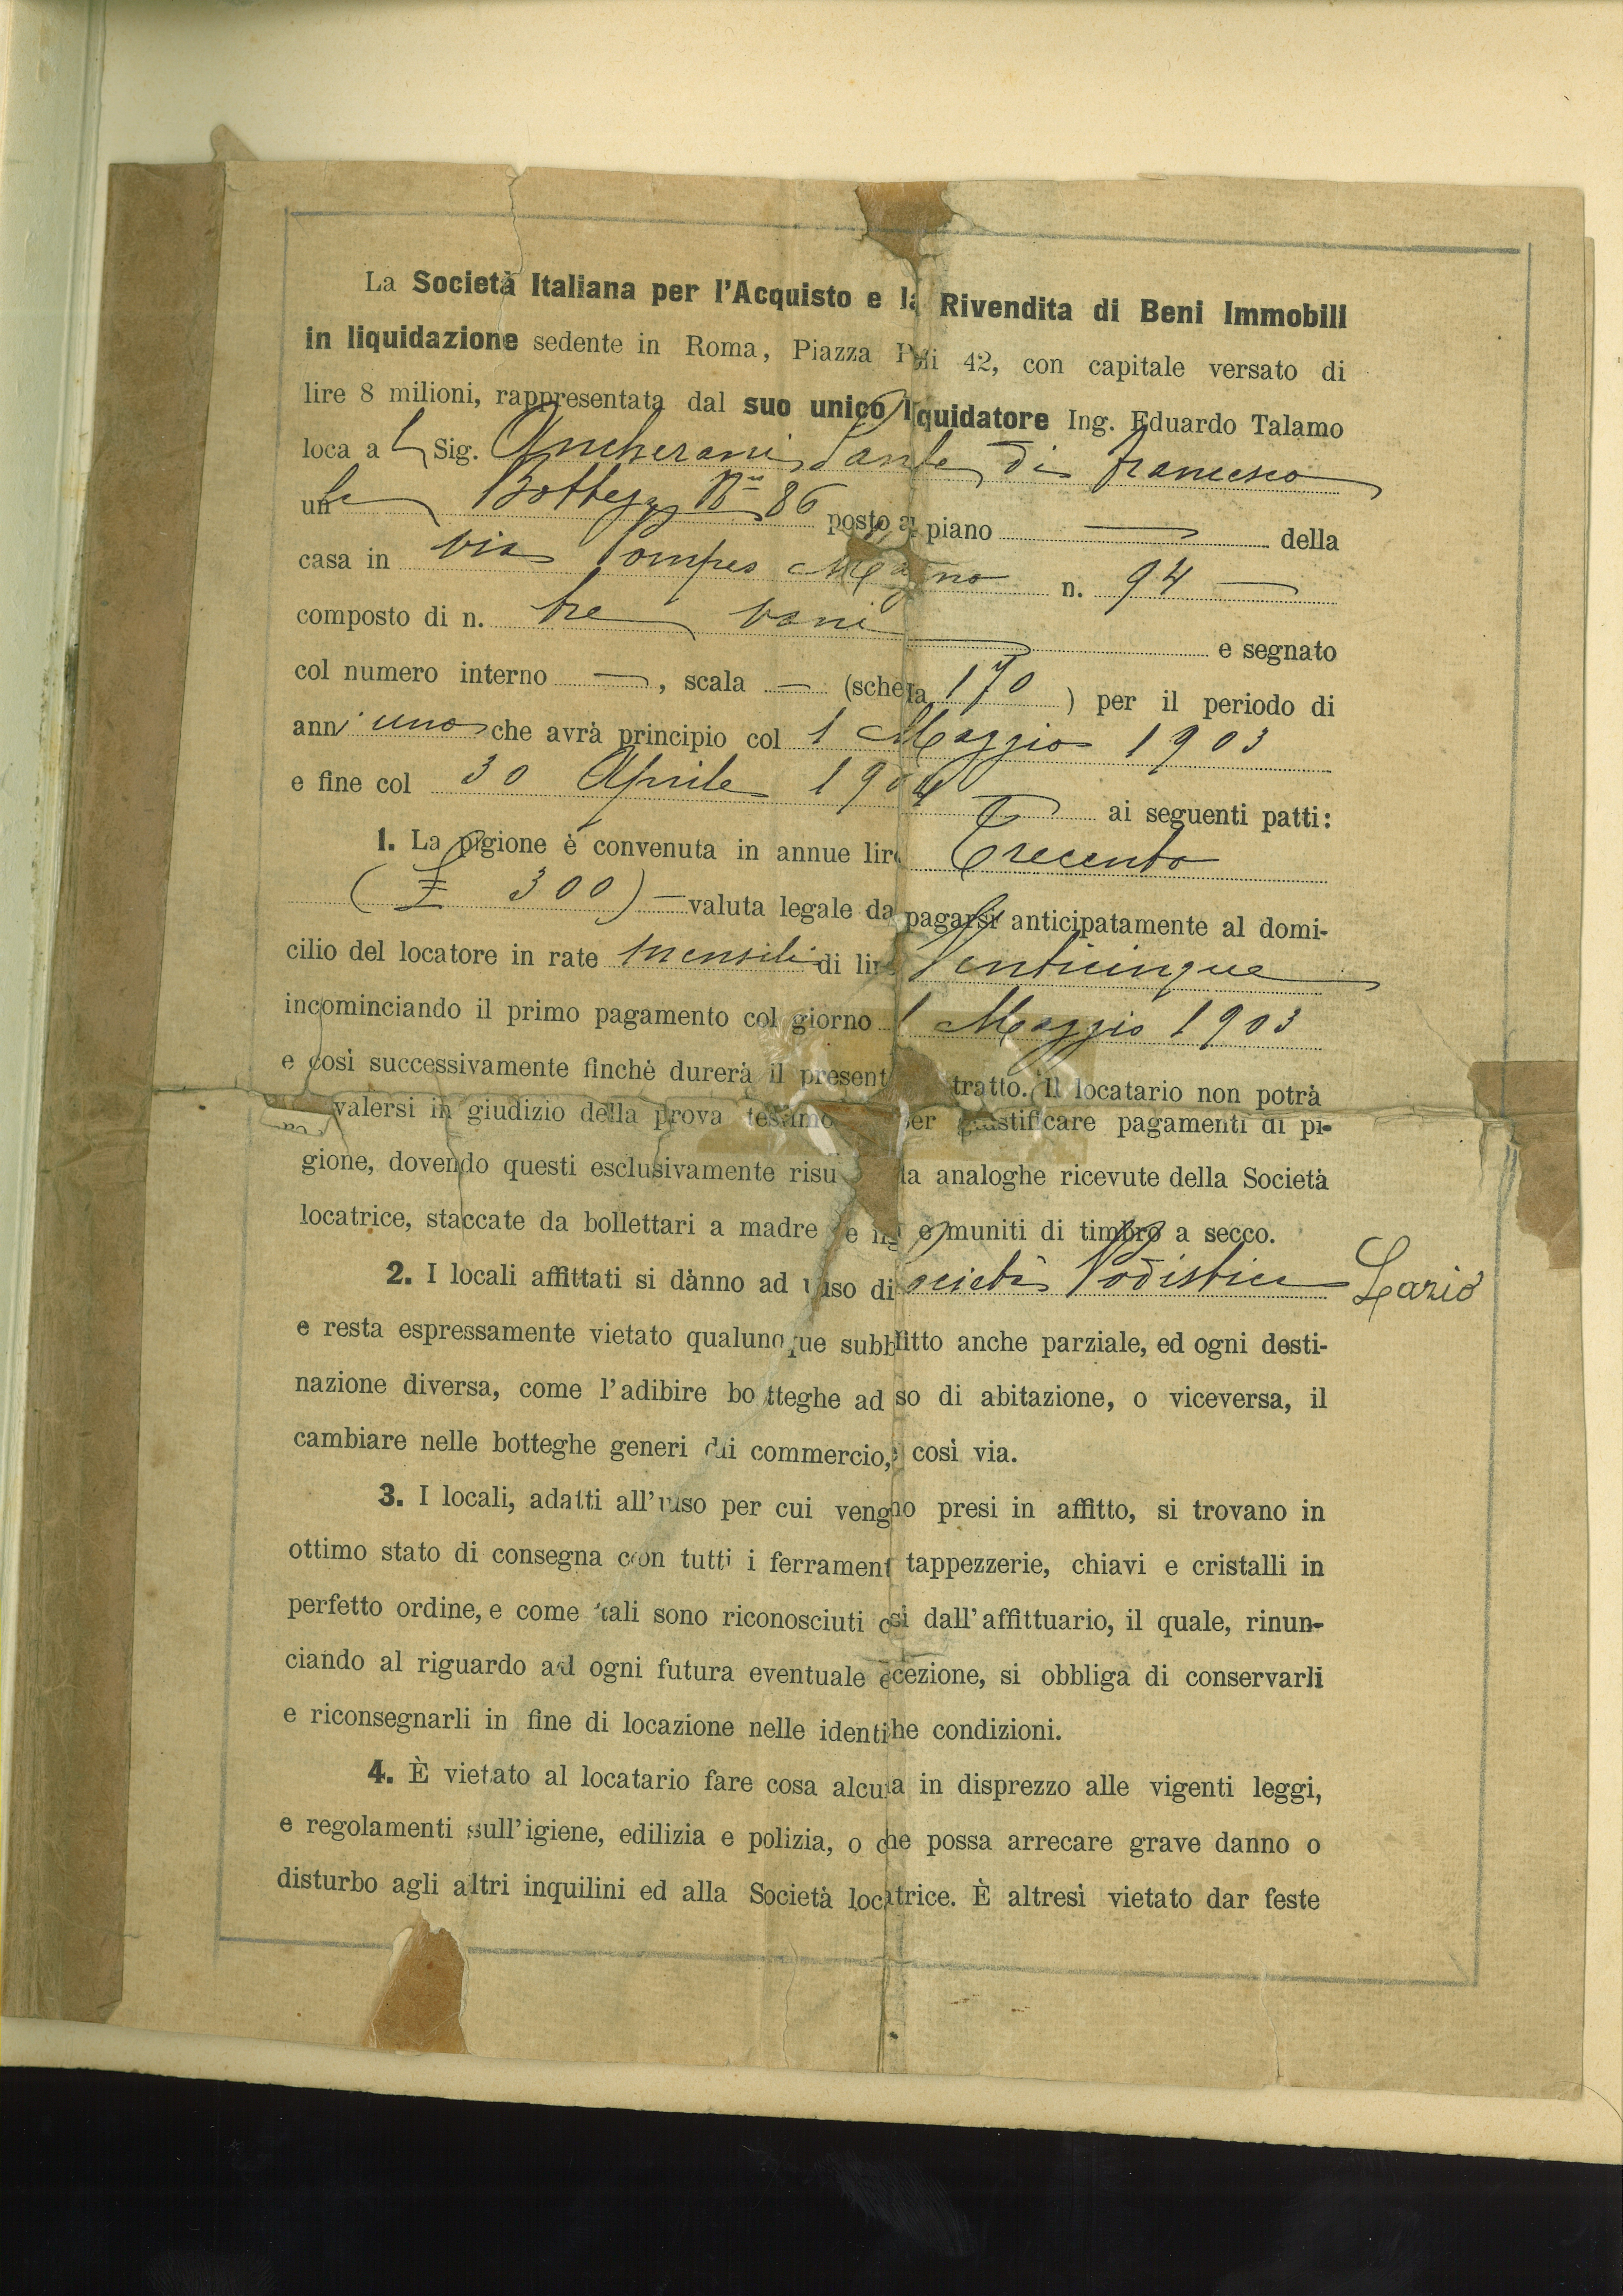 La Società Italiana per l'Acquisto e la Rivendita di Beni Immobili
in liquidazione sedente in Roma, Piazza Poli 42, con capitale versato di
lire 8 milioni, rappresentata dal suo unico liquidatore Ing. Eduardo Talamo
loca al Sig. Ancherani Sante di Francesco
una Bottega No 86 posto a piano — della
casa in via Pompeo Magno n. 94 —
composto di n. tre vani e segnato
col numero interno —, scala — (scheda 170) per il periodo di
anni uno che avrà principio col 1 Maggio 1903
e fine col 30 Aprile 1904 ai seguenti patti:
1. La pigione è convenuta in annue lire Trecento
(£ 300) — valuta legale da pagarsi anticipatamente al domi-
cilio del locatore in rate mensili di lire Venticinque
incominciando il primo pagamento col giorno 1 Maggio 1903
e così successivamente finchè durerà il present tratto. Il locatario non potrà
valersi in giudizio della prova testimo per giustificare pagamenti di pi-
gione, dovendo questi esclusivamente risu da analoghe ricevute della Società
locatrice, staccate da bollettari a madre e e muniti di timbro a secco.
2. I locali affittati si dànno ad uso di Società Podistica Lazio
e resta espressamente vietato qualunque subbfitto anche parziale, ed ogni desti-
nazione diversa, come l'adibire botteghe ad so di abitazione, o viceversa, il
cambiare nelle botteghe generi di commercio, e così via.
3. I locali, adatti all'uso per cui vengno presi in affitto, si trovano in
ottimo stato di consegna con tutti i ferrament tappezzerie, chiavi e cristalli in
perfetto ordine, e come tali sono riconosciuti così dall'affittuario, il quale, rinun-
ciando al riguardo ad ogni futura eventuale eccezione, si obbliga di conservarli
e riconsegnarli in fine di locazione nelle identiche condizioni.
4. È vietato al locatario fare cosa alcuna in disprezzo alle vigenti leggi,
e regolamenti sull'igiene, edilizia e polizia, o che possa arrecare grave danno o
disturbo agli altri inquilini ed alla Società locatrice. È altresì vietato dar feste